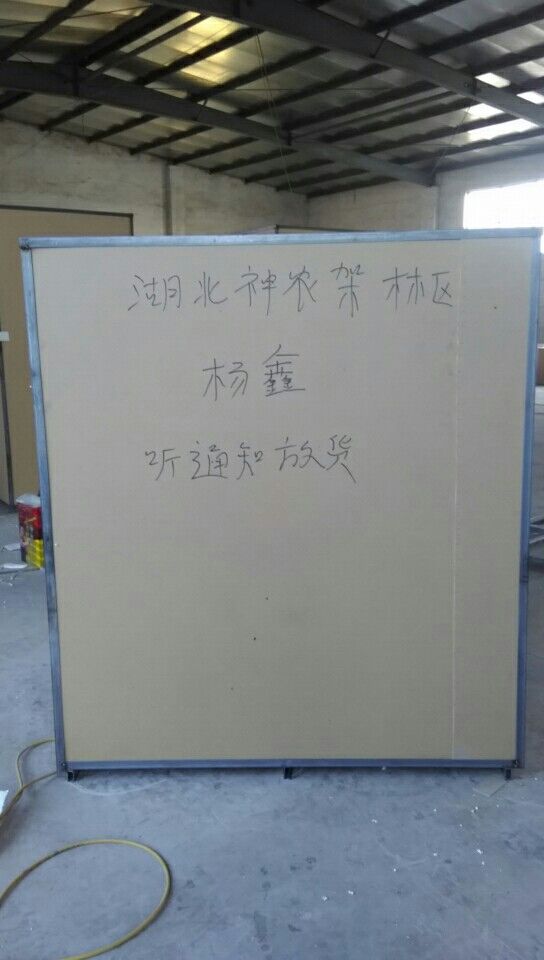 湖北神农架林区
杨鑫
听通知放货